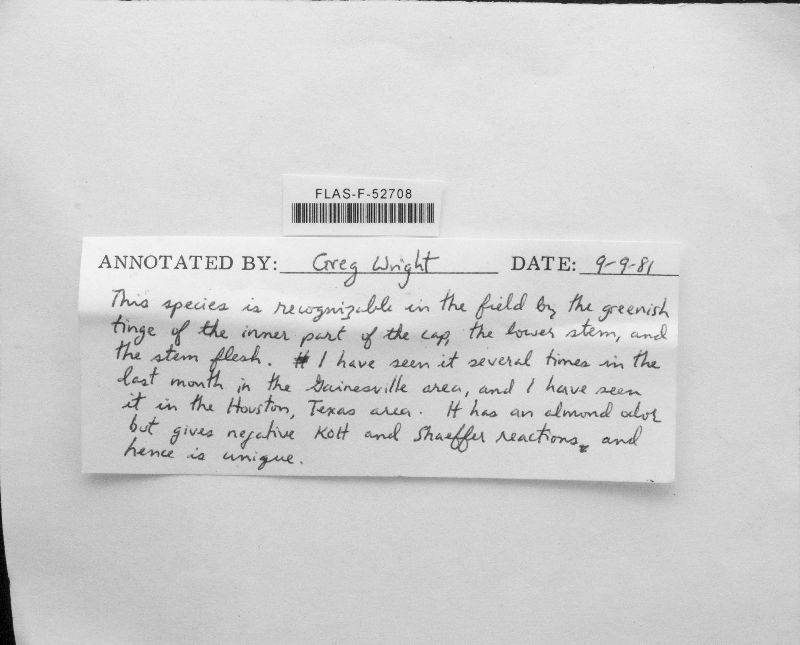 FLAS-F-52708
ANNOTATED BY: Greg Wright DATE: 9-9-81
This species is recognizable in the field by the greenish
tinge of the inner part of the cap, the lower stem, and
the stem flesh. I have seen it several times in the
last month in the Gainesville area, and I have seen
it in the Houston, Texas area. It has an almond odor
but gives negative KOH and Shaeffer reactions, and
hence is unique.